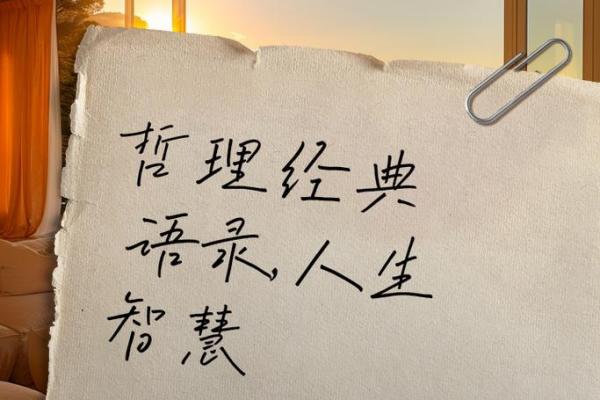 哲理经典
语录,人生
智慧